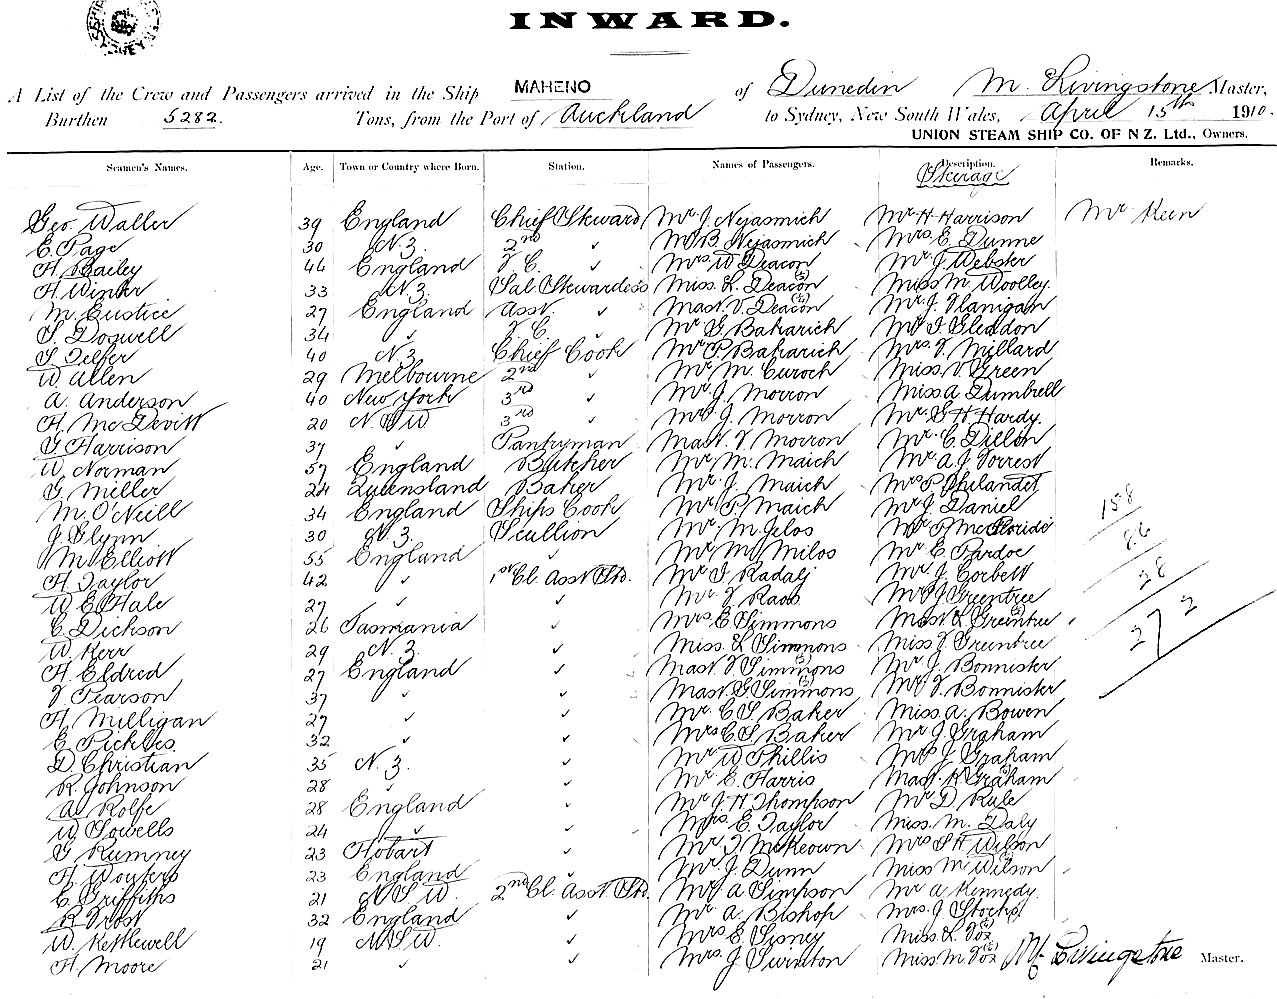 INWARD.
A List of the Crew and Passengers arrived in the Ship MAHENO of Dunedin M. Livingstone Master,
Burthen 5282. Tons, from the Port of Auckland to Sydney, New South Wales, April 15th 1910.
UNION STEAM SHIP CO. OF N Z. Ltd., Owners.
Seamen's Names. Age. Town or Country where Born. Station. Names of Passengers. Description. Remarks.
Steerage
Geo. Waller 39 England Chief Steward Mr J. Nejasmich Mr H Harrison Mr Keen
E. Page 30 N.Z. 2nd ✓ Mr B. Nejasmich Mrs E. Dunne
H. Bailey 46 England F C. ✓ Mrs W Deacon Mr J. Webster
H. Winter 33 N.Z. Sal Stewardess Miss. L. Deacon Miss M. Woolley.
M. Eustice 27 England Asst. ✓ Mast. V. Deacon Mr J. Flanigan
S. Doswell 34 ✓ F C ✓ Mr G. Bakarich Mr I. Gleddon
S. Telfer 40 N.Z. Chief Cook Mr P. Bakarich Mrs. F. Millard
W. Allen 29 Melbourne 2nd ✓ Mr M. Curoch Miss. V. Green
A. Anderson 40 New York 3rd ✓ Mr J. Morron Miss A. Dumbrell
H. McDevitt 20 N.S.W 3rd ✓ Mrs J. Morron Mr G H Hardy.
G. Harrison 37 ✓ Pantryman Mast. F Morron Mr. C. Dillon
W. Norman 57 England Butcher Mr M. Maich Mr A. J. Forrest
G. Miller 24 Queensland Baker Mr. J. Maich Mrs P. Philandet
M. O'Neill 34 England Ships Cook Mr. P. Maich Mr J. Daniel
J. Glynn 30 N.Z. Scullion Mr. M. Jelos Mr P. McFloride
M. Elliott 55 England ✓ Mr M. Milos Mr E. Pardoe
H. Taylor 42 ✓ 1st Cl. Asst Std. Mr I. Radalj Mr. J. Corbett
W. E. Hale 27 ✓ ✓ Mr. F. Raos Mr J Greentree
C. Dickson 26 Tasmania ✓ Mrs E. Simmons Mast L. Greentree
W. Kerr 29 N.Z. ✓ Miss. L. Simmons Miss F. Greentree
H. Eldred 27 England ✓ Mast. F. Simmons Mr J. Bonnister
F. Pearson 37 ✓ ✓ Mast G Simmons Mr F. Bonnister
H. Milligan 27 ✓ ✓ Mr. C. S. Baker Miss. A. Bowen
E. Pickles. 32 ✓ ✓ Mrs C. S. Baker Mr J. Graham
D. Christian 35 N.Z. ✓ Mr W Phillis Mrs J. Graham
R. Johnson 28 ✓ ✓ Mr E. Harris Mast. K Graham
A. Rolfe 28 England ✓ Mr J. H. Thompson Mr D. Rule
W. Sowells 24 ✓ ✓ Mrs. E. Taylor Miss. M. Daly
G Rumney 23 Hobart ✓ Mr. T. McKeown Mrs S. H. Wilson
H. Wouters 23 England ✓ Mr. J. Dunn Miss M. Wilson
E. Griffiths 21 N.S.W. 2nd Cl. Asst Std. Mr A Simpson Mr A Kennedy.
R. Frost 32 England ✓ Mr. A. Bishop Mrs. J. Stocks
W. Kettlewell 19 N.S.W. ✓ Mrs E. Sisney Miss L. Fox
H. Moore 21 ✓ ✓ Mrs. J Swinton Miss M. Fox M Livingstone Master.
158
86
28
272